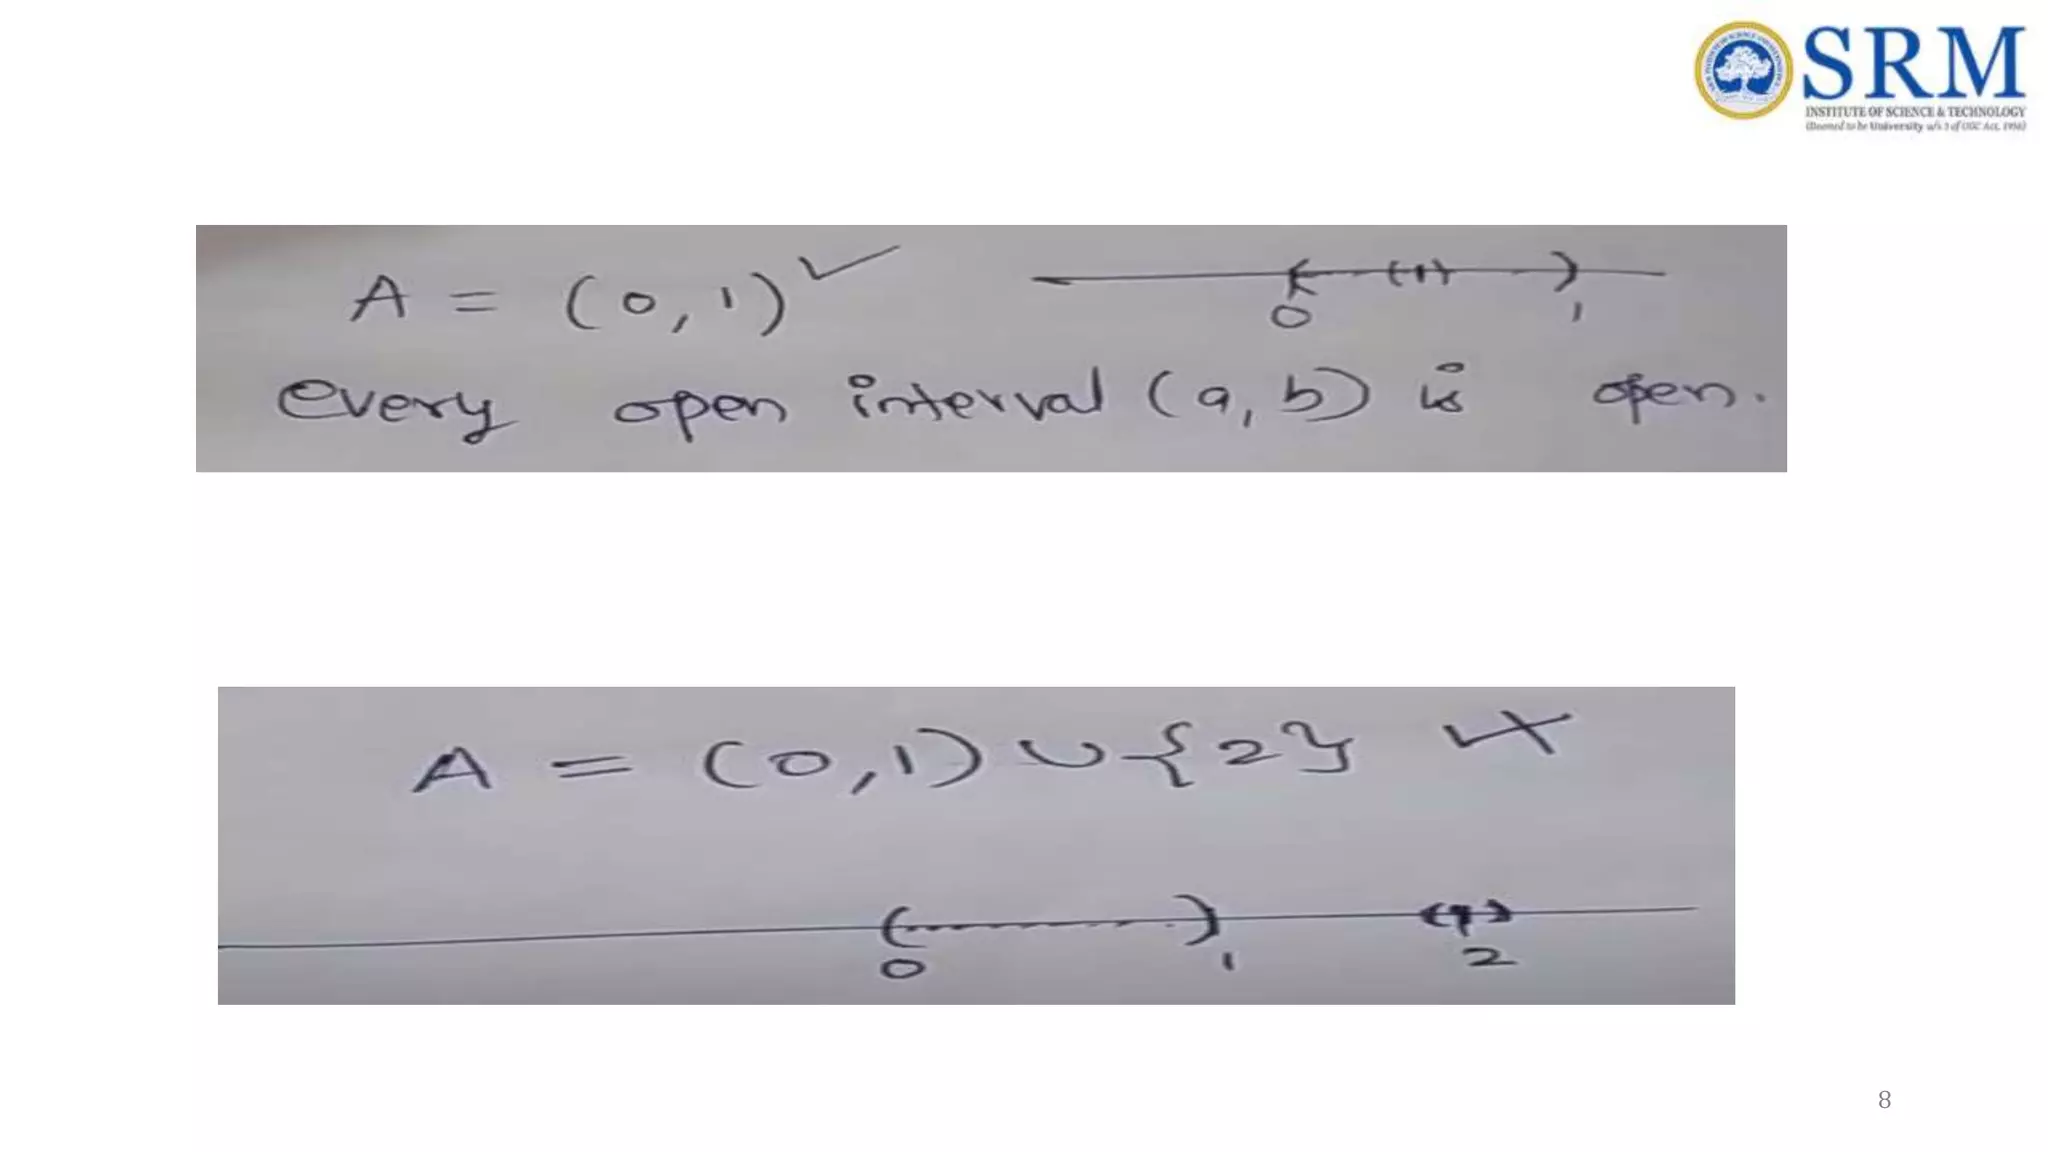 SRM
INSTITUTE OF SCIENCE & TECHNOLOGY
(Deemed to be University u/s 3 of UGC Act, 1956)
A = (0,1) ✓
0 1
every open interval (a, b) is open.
A = (0,1) ∪ {2}
0 1 2
8